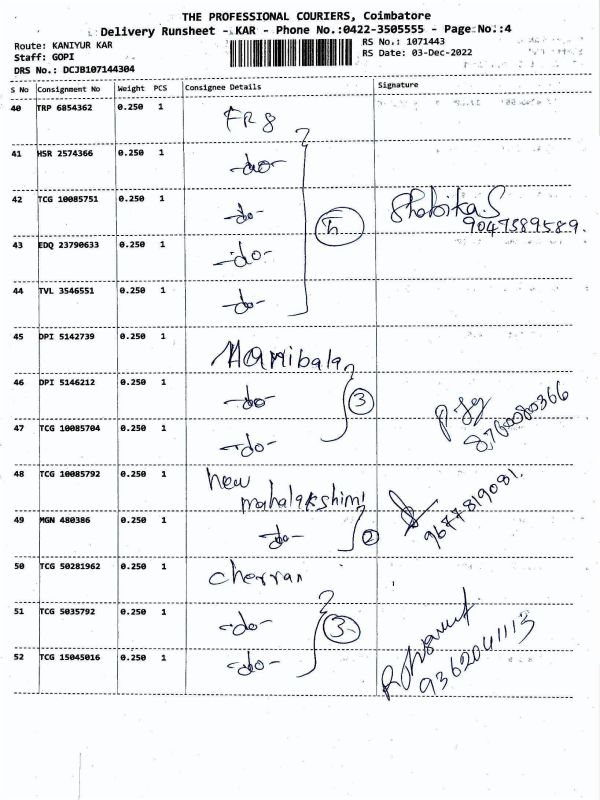 THE PROFESSIONAL COURIERS, Coimbatore
Delivery Runsheet - KAR - Phone No.:0422-3505555 - Page No.:4
Route: KANIYUR KAR
RS No.: 1071443
Staff: GOPI
RS Date: 03-Dec-2022
DRS No.: DCJB107144304
S No Consignment No Weight PCS Consignee Details Signature
40 TRP 6854362 0.250 1 FR 8
41 HSR 2574366 0.250 1 -do-
42 TCG 10085751 0.250 1 -do- 9047589589.
43 EDQ 23790633 0.250 1 -do-
44 TVL 3546551 0.250 1 -do-
45 DPI 5142739 0.250 1 Manibala
46 DPI 5146212 0.250 1 -do- 3
47 TCG 10085704 0.250 1 -do-
48 TCG 10085792 0.250 1 new
mahalakshimi
9677819081.
49 MGN 480386 0.250 1 -do- 2
50 TCG 50281962 0.250 1 cherran
51 TCG 5035792 0.250 1 -do- 3
52 TCG 15045016 0.250 1 -do- 9362041113